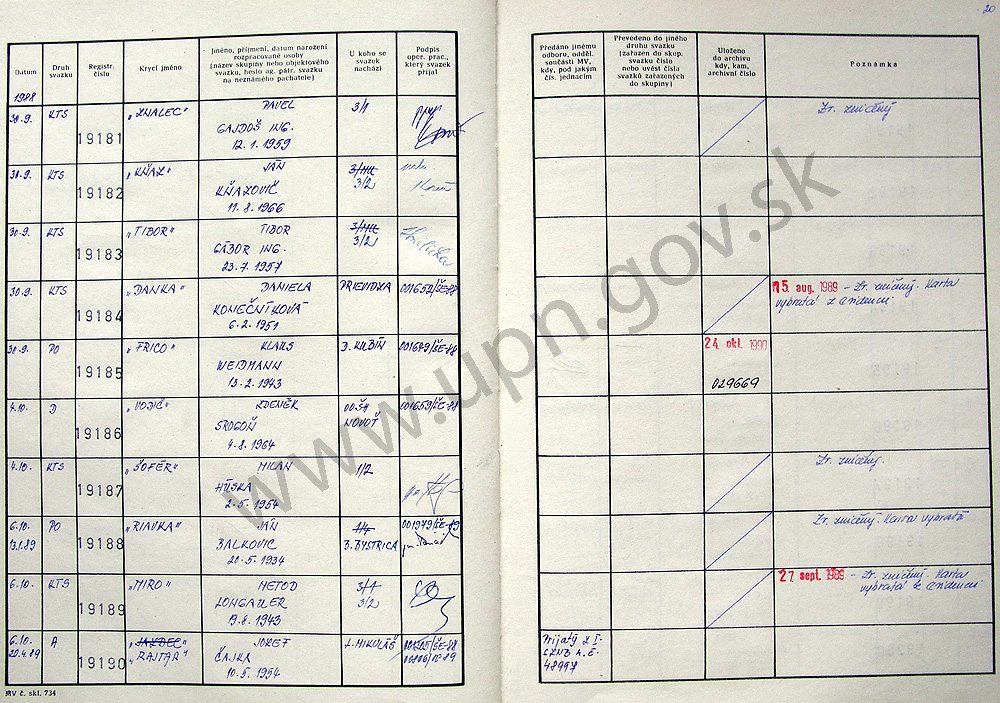 20
Datum
Druh
svazku
Registr.
číslo
Krycí jméno
Jméno, příjmení, datum narození
rozpracované osoby
(název skupiny nebo objektového
svazku, heslo ag. pátr. svazku
na neznámého pachatele)
U koho se
svazek
nachází
Podpis
oper. prac.,
který svazek
přijal
Předáno jinému
odboru, odděl.
součásti MV,
kdy, pod jakým
čís. jednacím
Převedeno do jiného
druhu svazku
(zařazen do skup.
svazku číslo
nebo uvést čísla
svazků zařazených
do skupiny)
Uloženo
do archivu
kdy, kam,
archivní číslo
Poznámka
1988
30.9. KTS 19181 „ZNALEC" PAVEL 3/1
GAJDOŠ ING.
12.1.1959
Zv. zničený
30.9. KTS 19182 „KŇAZ" JÁN
KŇAZOVIČ 3/2
11.8.1966
30.9. KTS 19183 „TIBOR" TIBOR
GÁBOR ING. 3/2
23.7.1957
30.9. KTS 19184 „DANKA" DANIELA PRIEVIDZA 001652/ŠE-88
KONEČNÍKOVÁ
6.2.1951
15. aug. 1989 - Zv. zničený. Karta
vybratá z evidencie
30.9. PO 19185 „FRICO" KLAUS D. KUBÍN 001649/ŠE-88
WEIDMANN
13.2.1943
24. okt. 1990
029669
4.10. D 19186 „VODIČ" ZDENĚK 001659/ŠE-88
SROGOŇ
4.8.1964
4.10. KTS 19187 „ŠOFÉR" MILAN 1/2
HÚSKA
2.5.1954
Zv. zničený.
6.10. PO 19188 „RIAVKA" JÁN 1/4 001979/ŠE-89
13.1.89 BALKOVIC B. BYSTRICA
20.5.1934
Zv. zničený. Karta vybratá
6.10. KTS 19189 „MIRO" METOD 3/1
LONGAUER 3/2
19.8.1943
27 sept. 1989 - Zv. zničený. Karta
vybratá z evidencie
6.10. A 19190 JOZEF L. MIKULÁŠ
20.4.89 „RAJTAR" ČAJKA
10.5.1954
Prijatý z I.
48997
MV č. skl. 734
www.upn.gov.sk